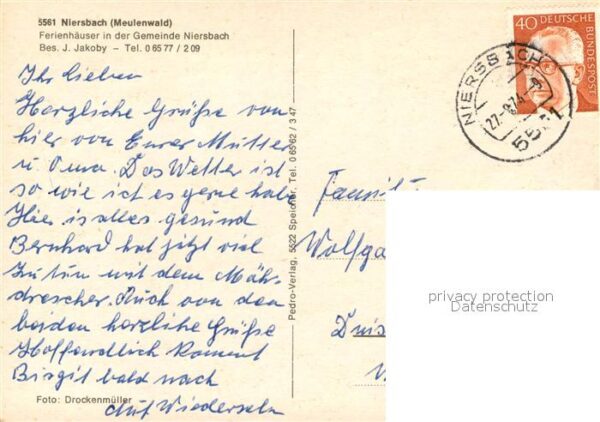 5561 Niersbach (Meulenwald)
Ferienhäuser in der Gemeinde Niersbach
Bes. J. Jakoby – Tel. 0 65 77 / 2 09
Ihr Lieben
Herzliche Grüße von
hier von Eurer Mutter
u. Oma. Das Wetter ist
so wie ich es gerne habe
Hier is alles gesund
Bernhard hat jetzt viel
zu tun mit dem Mäh-
drescher. Auch von den
beiden herzliche Grüße
Hoffendlich kommt
Birgit bald nach
Auf Wiedersehn
Foto: Drockenmüller
Pedro-Verlag, 5522 Speicher, Tel. 0 65 62 / 3 47
40 DEUTSCHE
BUNDESPOST
NIERSBACH
27.-8.74
5561
Familie
Wolfga
Duis
privacy protection
Datenschutz